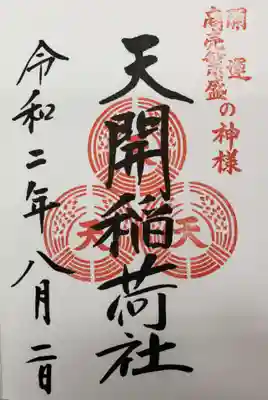 開運
商売繁盛の神様
天開稲荷社
天
天
令和二年八月二日